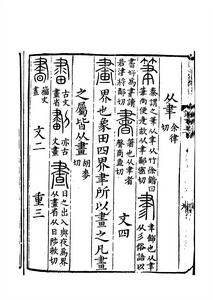 从聿 余律切
筆 秦謂之筆从聿从竹徐鍇曰筆尚便疌故从聿鄙密切 𦘔 聿飾也从聿从彡俗語以
書好爲𦘔讀若津將鄰切 書 箸也从聿者聲商魚切 文四
畫 界也象田四界聿所以畫之凡畫
之屬皆从畫 胡麥切
古文畫省 亦古文畫 晝 日之出入與夜爲界从畫省从日陟救切
籒文晝 文二 重三